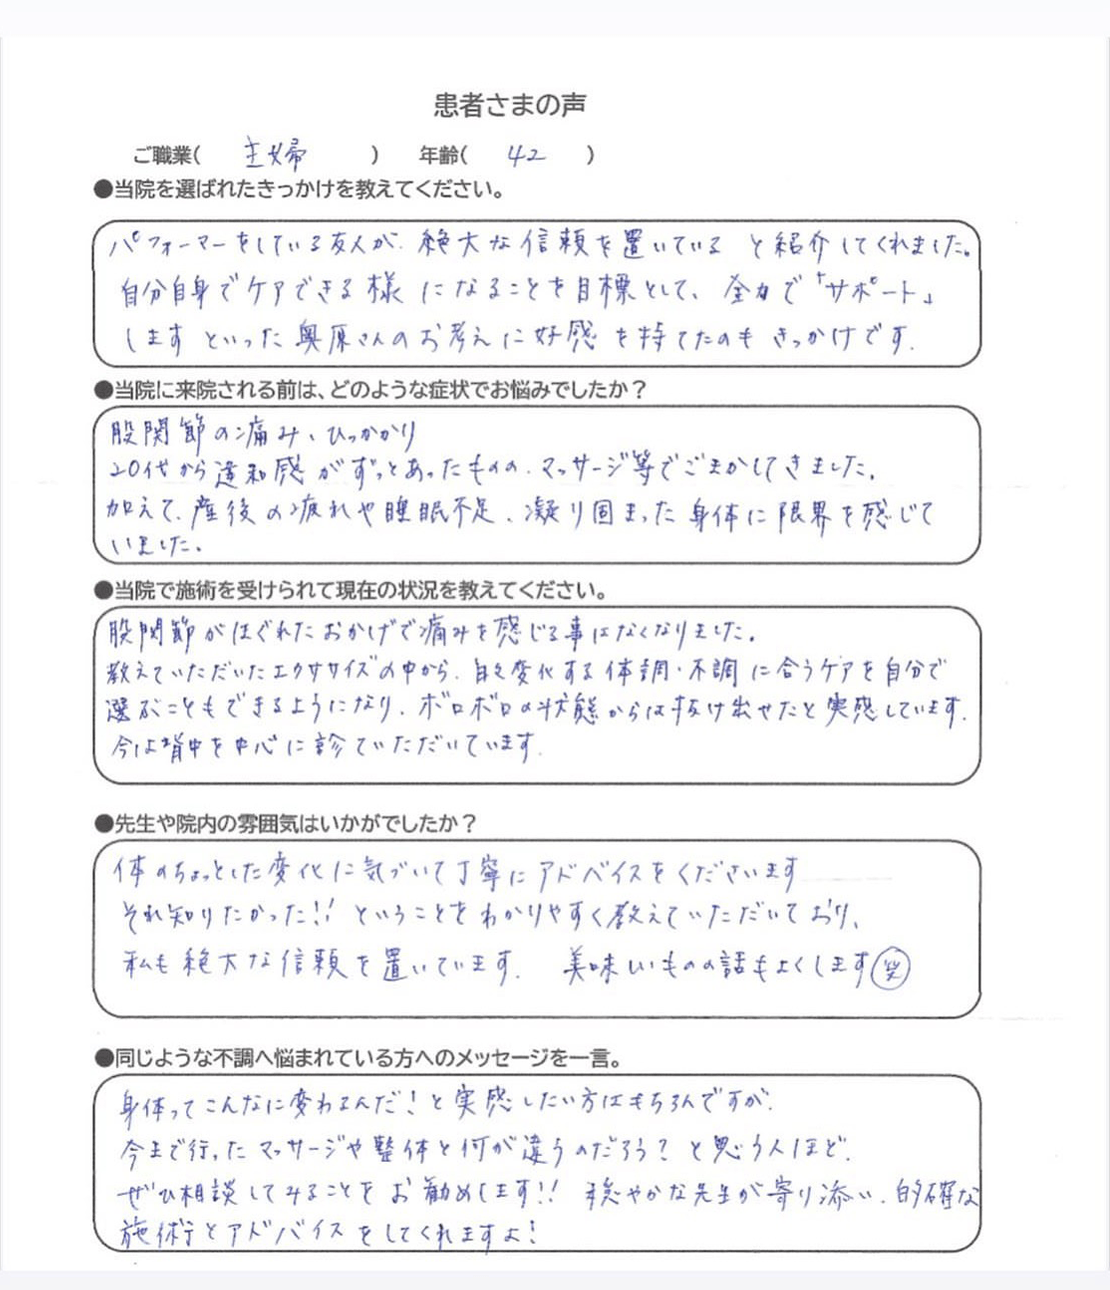 患者さまの声
ご職業( 主婦 ) 年齢( 42 )
●当院を選ばれたきっかけを教えてください。
パフォーマーをしている友人が、絶大な信頼を置いている と紹介してくれました。
自分自身でケアできる様になることを目標として、全力で「サポート」
します といった奥原さんのお考えに好感を持てたのもきっかけです。
●当院に来院される前は、どのような症状でお悩みでしたか？
股関節の痛み、ひっかかり
20代から違和感がずっとあったものの、マッサージ等でごまかしてきました。
加えて、産後の疲れや睡眠不足、凝り固まった身体に限界を感じて
いました。
●当院で施術を受けられて現在の状況を教えてください。
股関節がほぐれたおかげで痛みを感じる事はなくなりました。
教えていただいたエクササイズの中から、日々変化する体調・不調に合うケアを自分で
選ぶこともできるようになり、ボロボロの状態からは抜け出せたと実感しています。
今は背中を中心に診ていただいています。
●先生や院内の雰囲気はいかがでしたか？
体のちょっとした変化に気づいて丁寧にアドバイスをくださいます
それ知りたかった!! ということをわかりやすく教えていただいており、
私も絶大な信頼を置いています。 美味しいものの話もよくします(笑)
●同じような不調へ悩まれている方へのメッセージを一言。
身体ってこんなに変わるんだ！と実感したい方はもちろんですが、
今まで行ったマッサージや整体と何が違うのだろう？と思う人ほど、
ぜひ相談してみることをお勧めします!! 穏やかな先生が寄り添い、的確な
施術とアドバイスをしてくれますよ！